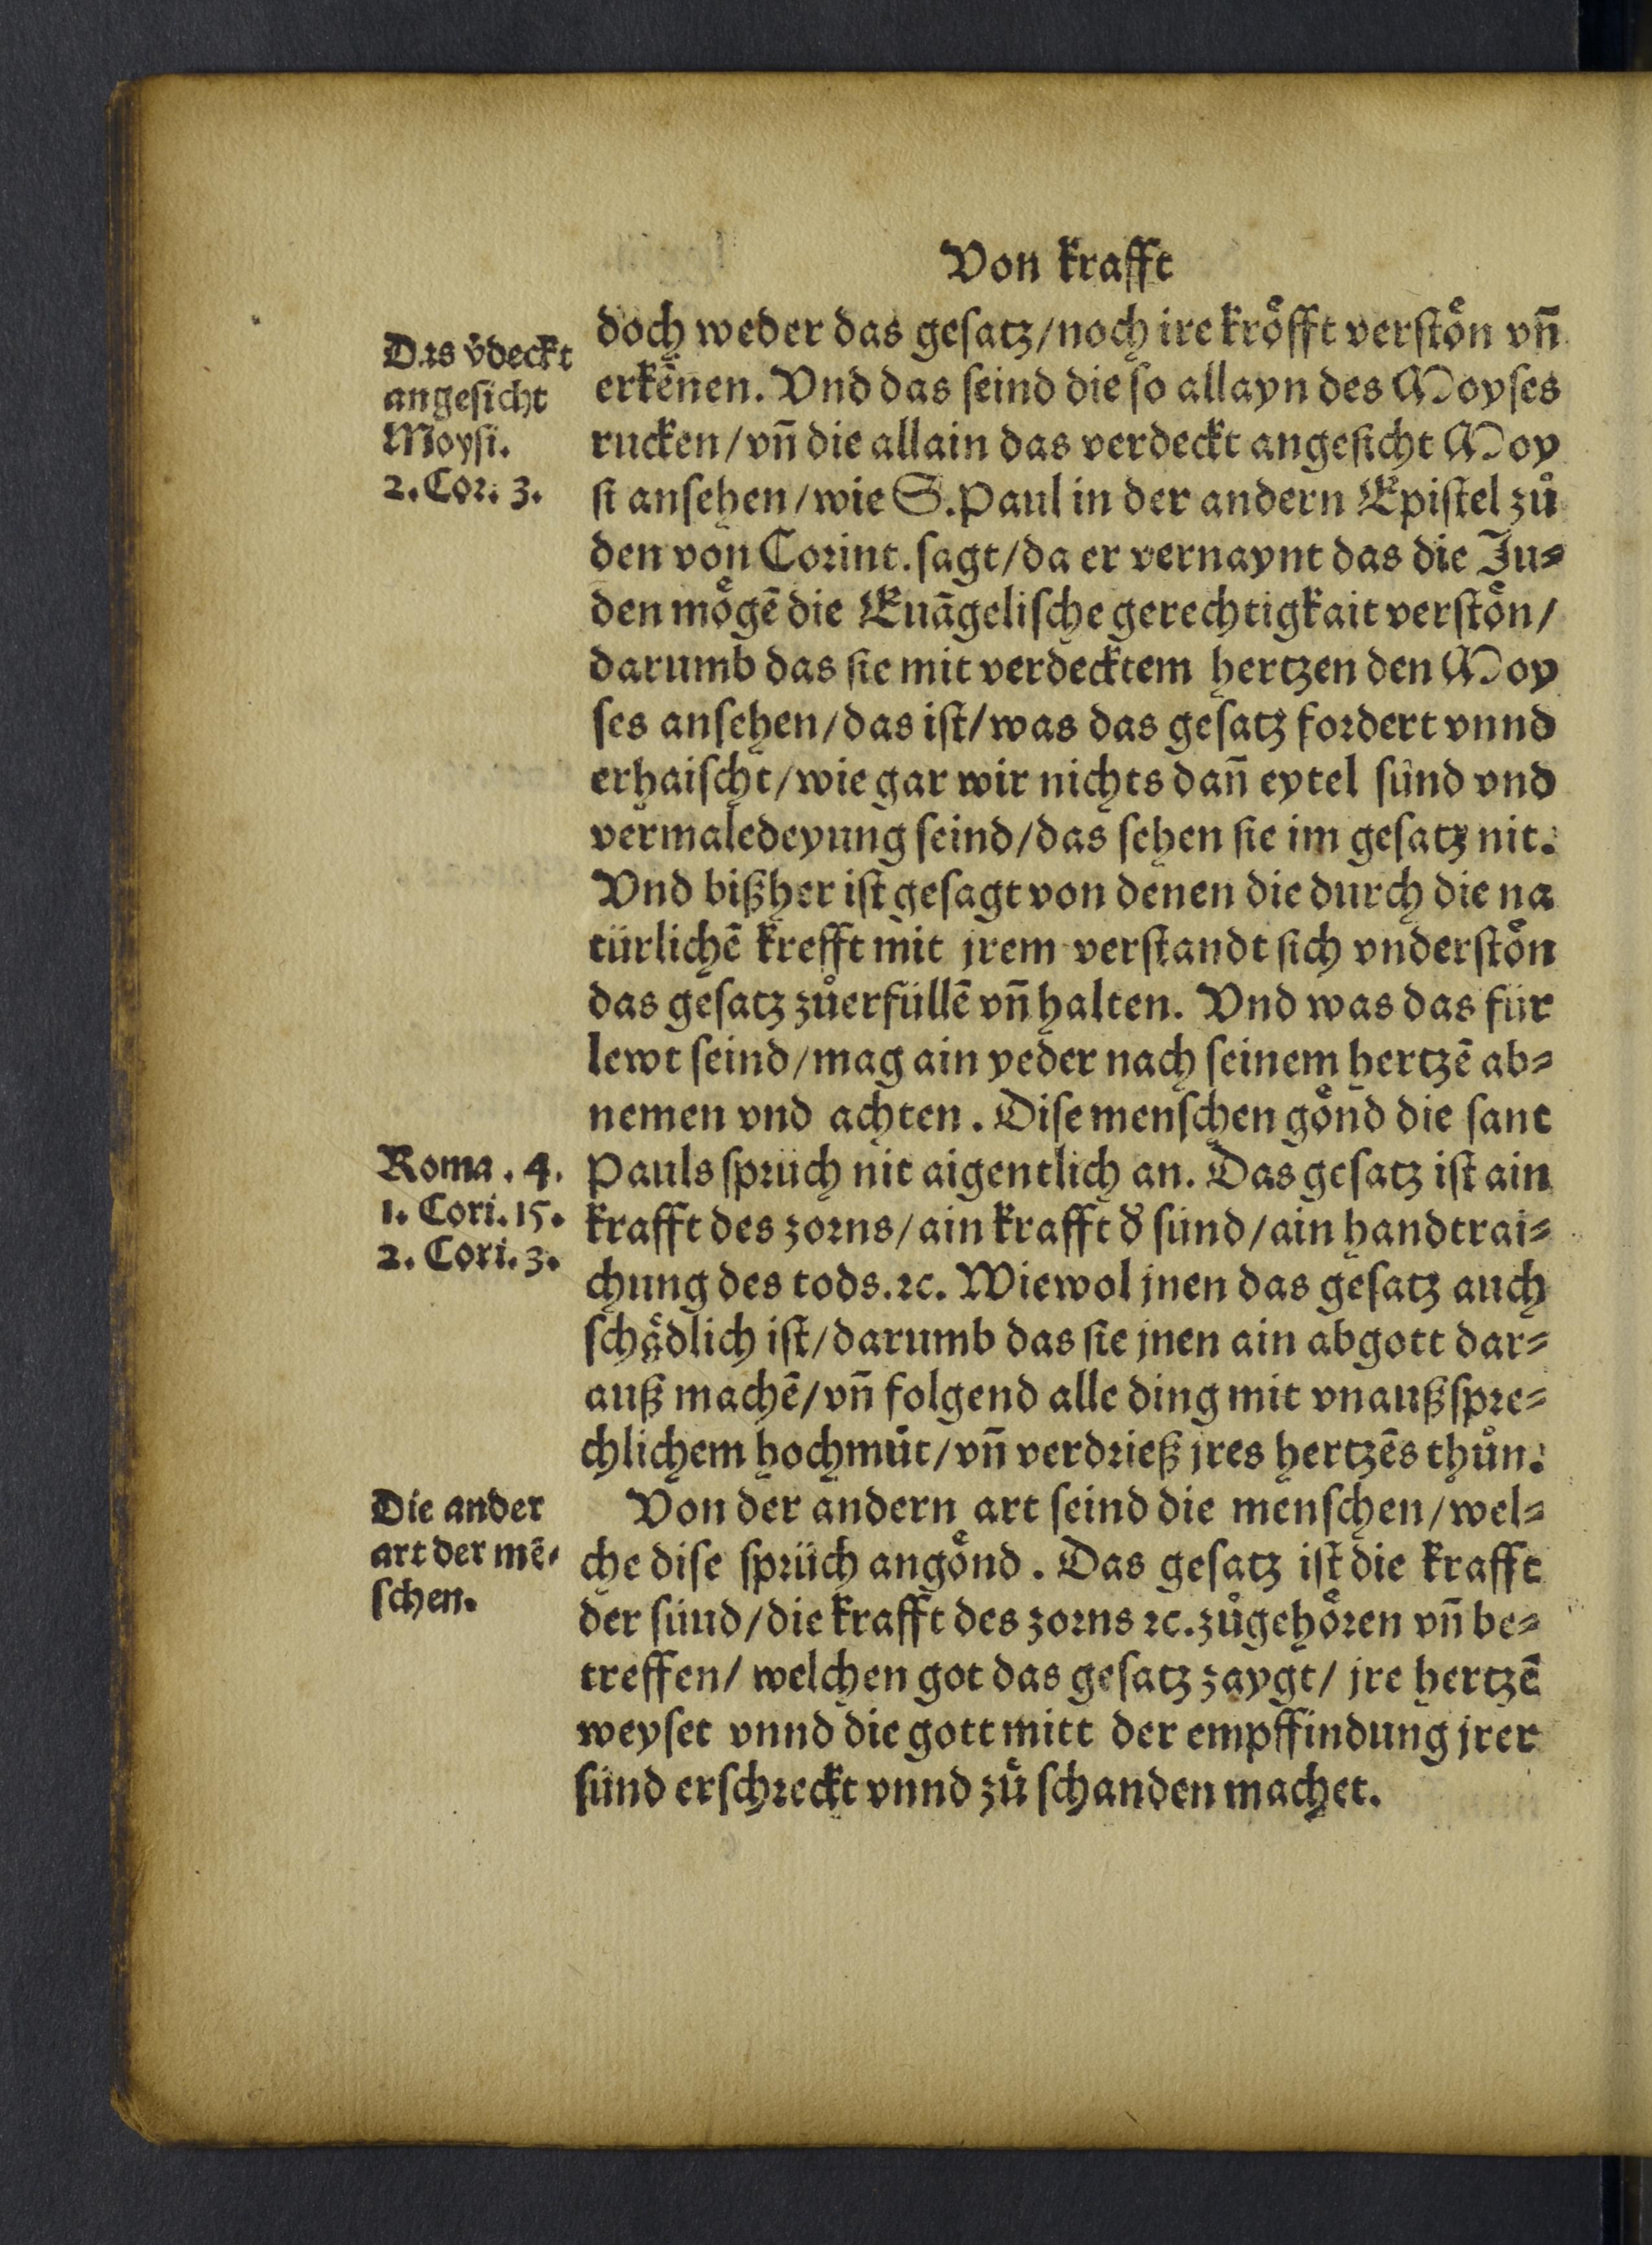 Von krafft
doch weder das gesatz/noch ire kroͤfft verstoͤn vñ
erkēnen. Vnd das seind die so allayn des Moyses
rucken/vñ die allain das verdeckt angesicht Moy
si ansehen/wie S.Paul in der andern Epistel zuͦ
den von Corint.sagt/da er vernaynt das die Ju⸗
den moͤgē die Euāgelische gerechtigkait verstoͤn/
darumb das sie mit verdecktem hertzen den Moy
ses ansehen/das ist/was das gesatz fordert vnnd
erhaischt/wie gar wir nichts dañ eytel sünd vnd
vermaledeyung seind/das sehen sie im gesatz nit.
Vnd bißher ist gesagt von denen die durch die na
türlichē krefft mit jrem verstandt sich vnderstoͤn
das gesatz zuͦerfüllē vñ halten. Vnd was das für
lewt seind/mag ain yeder nach seinem hertzē ab⸗
nemen vnd achten. Dise menschen goͤnd die sant
Pauls sprüch nit aigentlich an. Das gesatz ist ain
krafft des zorns/ain krafft d̕ sünd/ain handtrai⸗
chung des tods.ꝛc. Wiewol jnen das gesatz auch
schaͤdlich ist/darumb das sie jnen ain abgott dar⸗
auß machē/vñ folgend alle ding mit vnaußspre⸗
chlichem hochmuͦt/vñ verdrieß jres hertzēs thuͦn.
Von der andern art seind die menschen/wel⸗
che dise sprüch angoͤnd. Das gesatz ist die krafft
der sünd/die krafft des zorns ꝛc.zuͦgehoͤren vñ be⸗
treffen/ welchen got das gesatz zaygt/ jre hertzē
weyset vnnd die gott mitt der empffindung jrer
sünd erschreckt vnnd zuͦ schanden machet.
Das v̕deckt
angesicht
Moysi.
2. Cor. 3.
Roma. 4.
1. Cori. 15.
2. Cori. 3.
Die ander
art der mē⸗
schen.